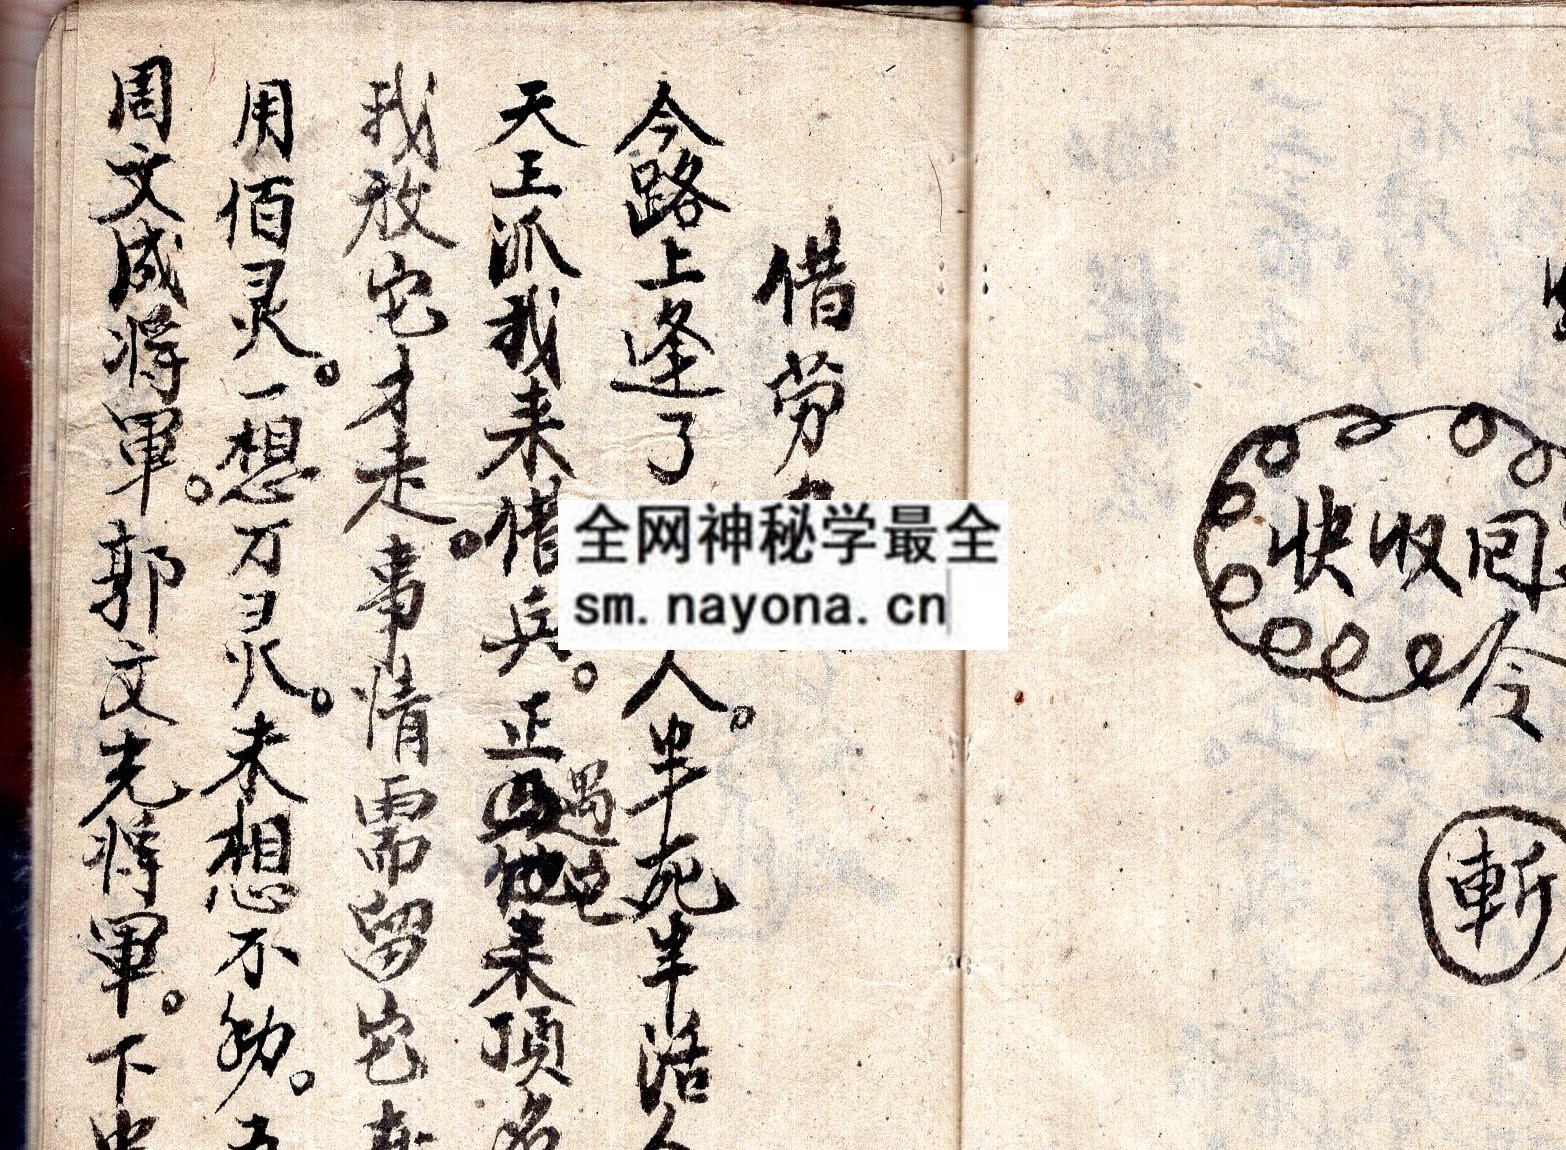 快收回
令
斬
借劳
今路上逢了人。半死半活人
天王派我来借兵。正遇它来顶名
我放它才走。事情需留它在
用佰灵。一想万灵。未想不动。五
周文成将軍。郭文先将軍。下中
全网神秘学最全
sm.nayona.cn